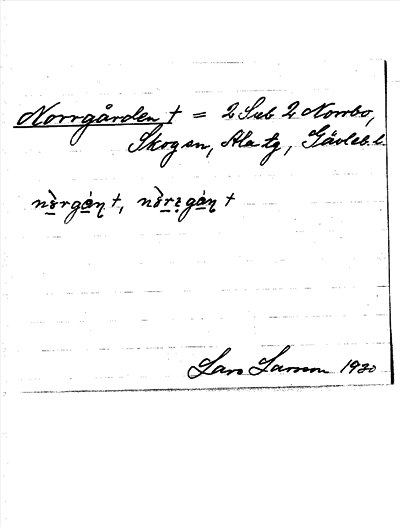 Norrgården † = 2 Sub 2 Norrbo,
Skogen, Ala tg, Gävleb. l.
nòrgá̱ṇ †, nòṟi̱gá̱ṇ †
Lars Larsson 1920